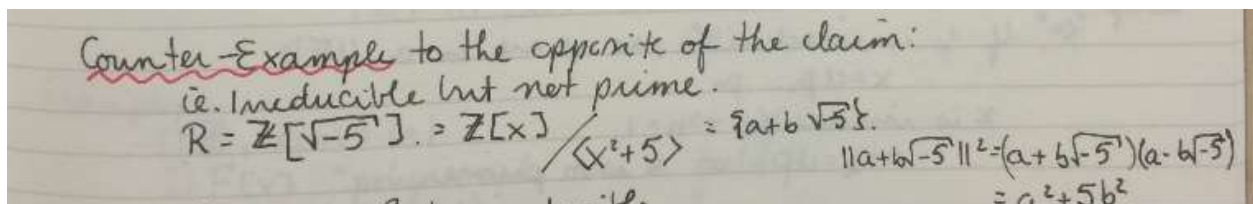 Counter-Example to the opposite of the claim:
ie. Irreducible but not prime.
R = ℤ[√-5]. = ℤ[x]/<x²+5> = {a+b√-5}.
||a+b√-5||² = (a+b√-5)(a-b√-5)
= a²+5b²